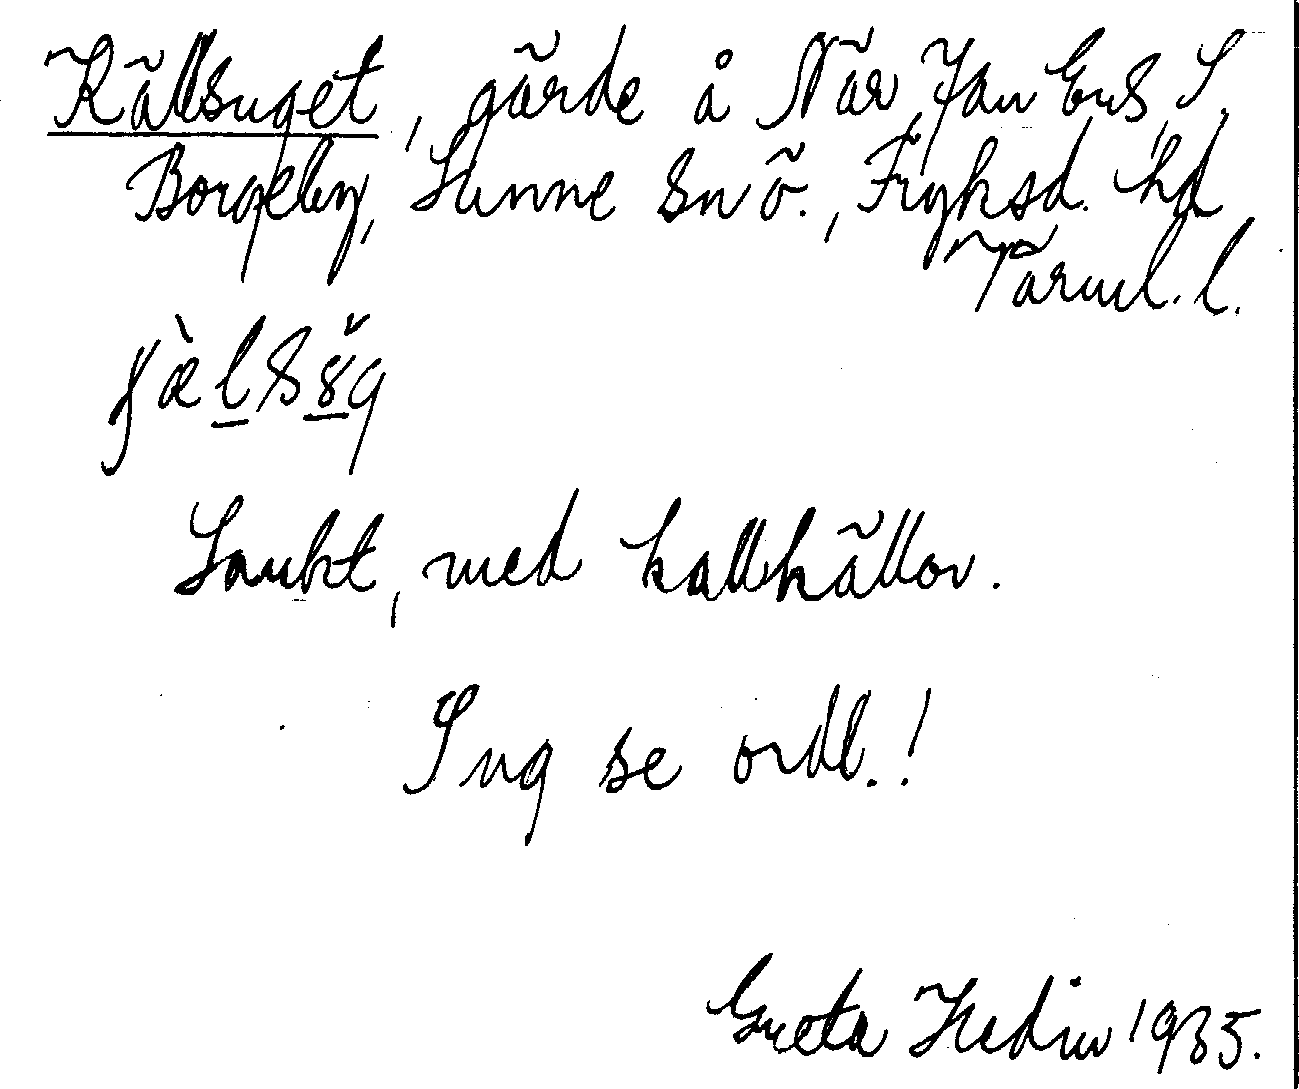 Källsuget, gärde å När, Jan Ers, S.
Borgeby, Sunne sn ö., Fryksd. hd
Värml. l.
Sankt, med kallkällor.
Sug se ordl.!
Greta Hedin 1935.